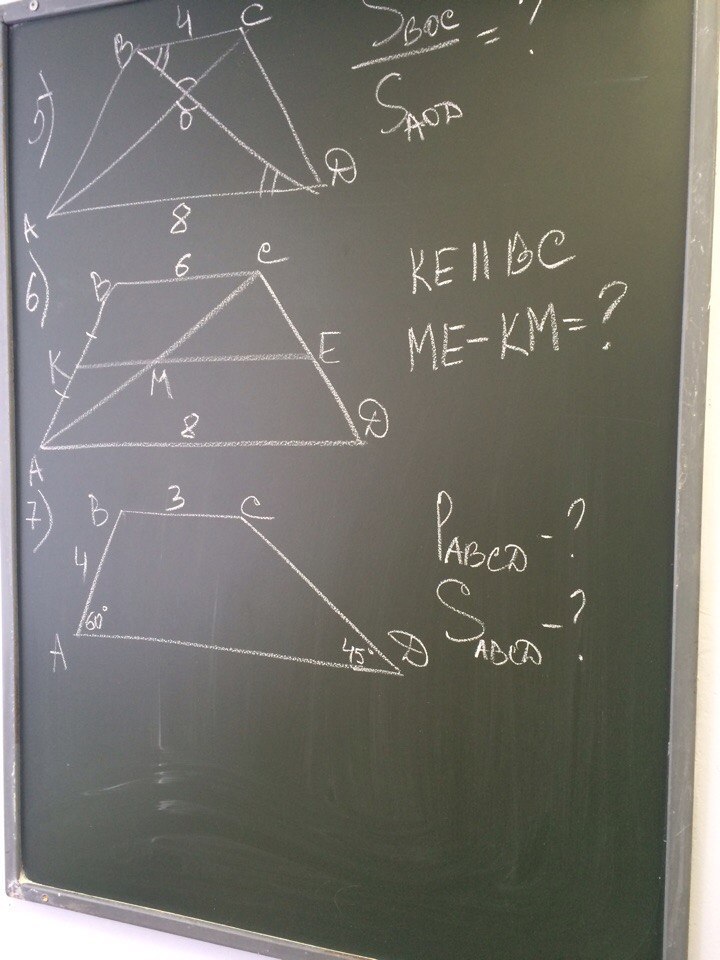 5)
B 4 C
O
A 8 D
S_BOC / S_AOD = ?
6)
B 6 C
K M E
A 8 D
KE || BC
ME - KM = ?
7)
B 3 C
4
60° 45°
A D
P_ABCD - ?
S_ABCD - ?